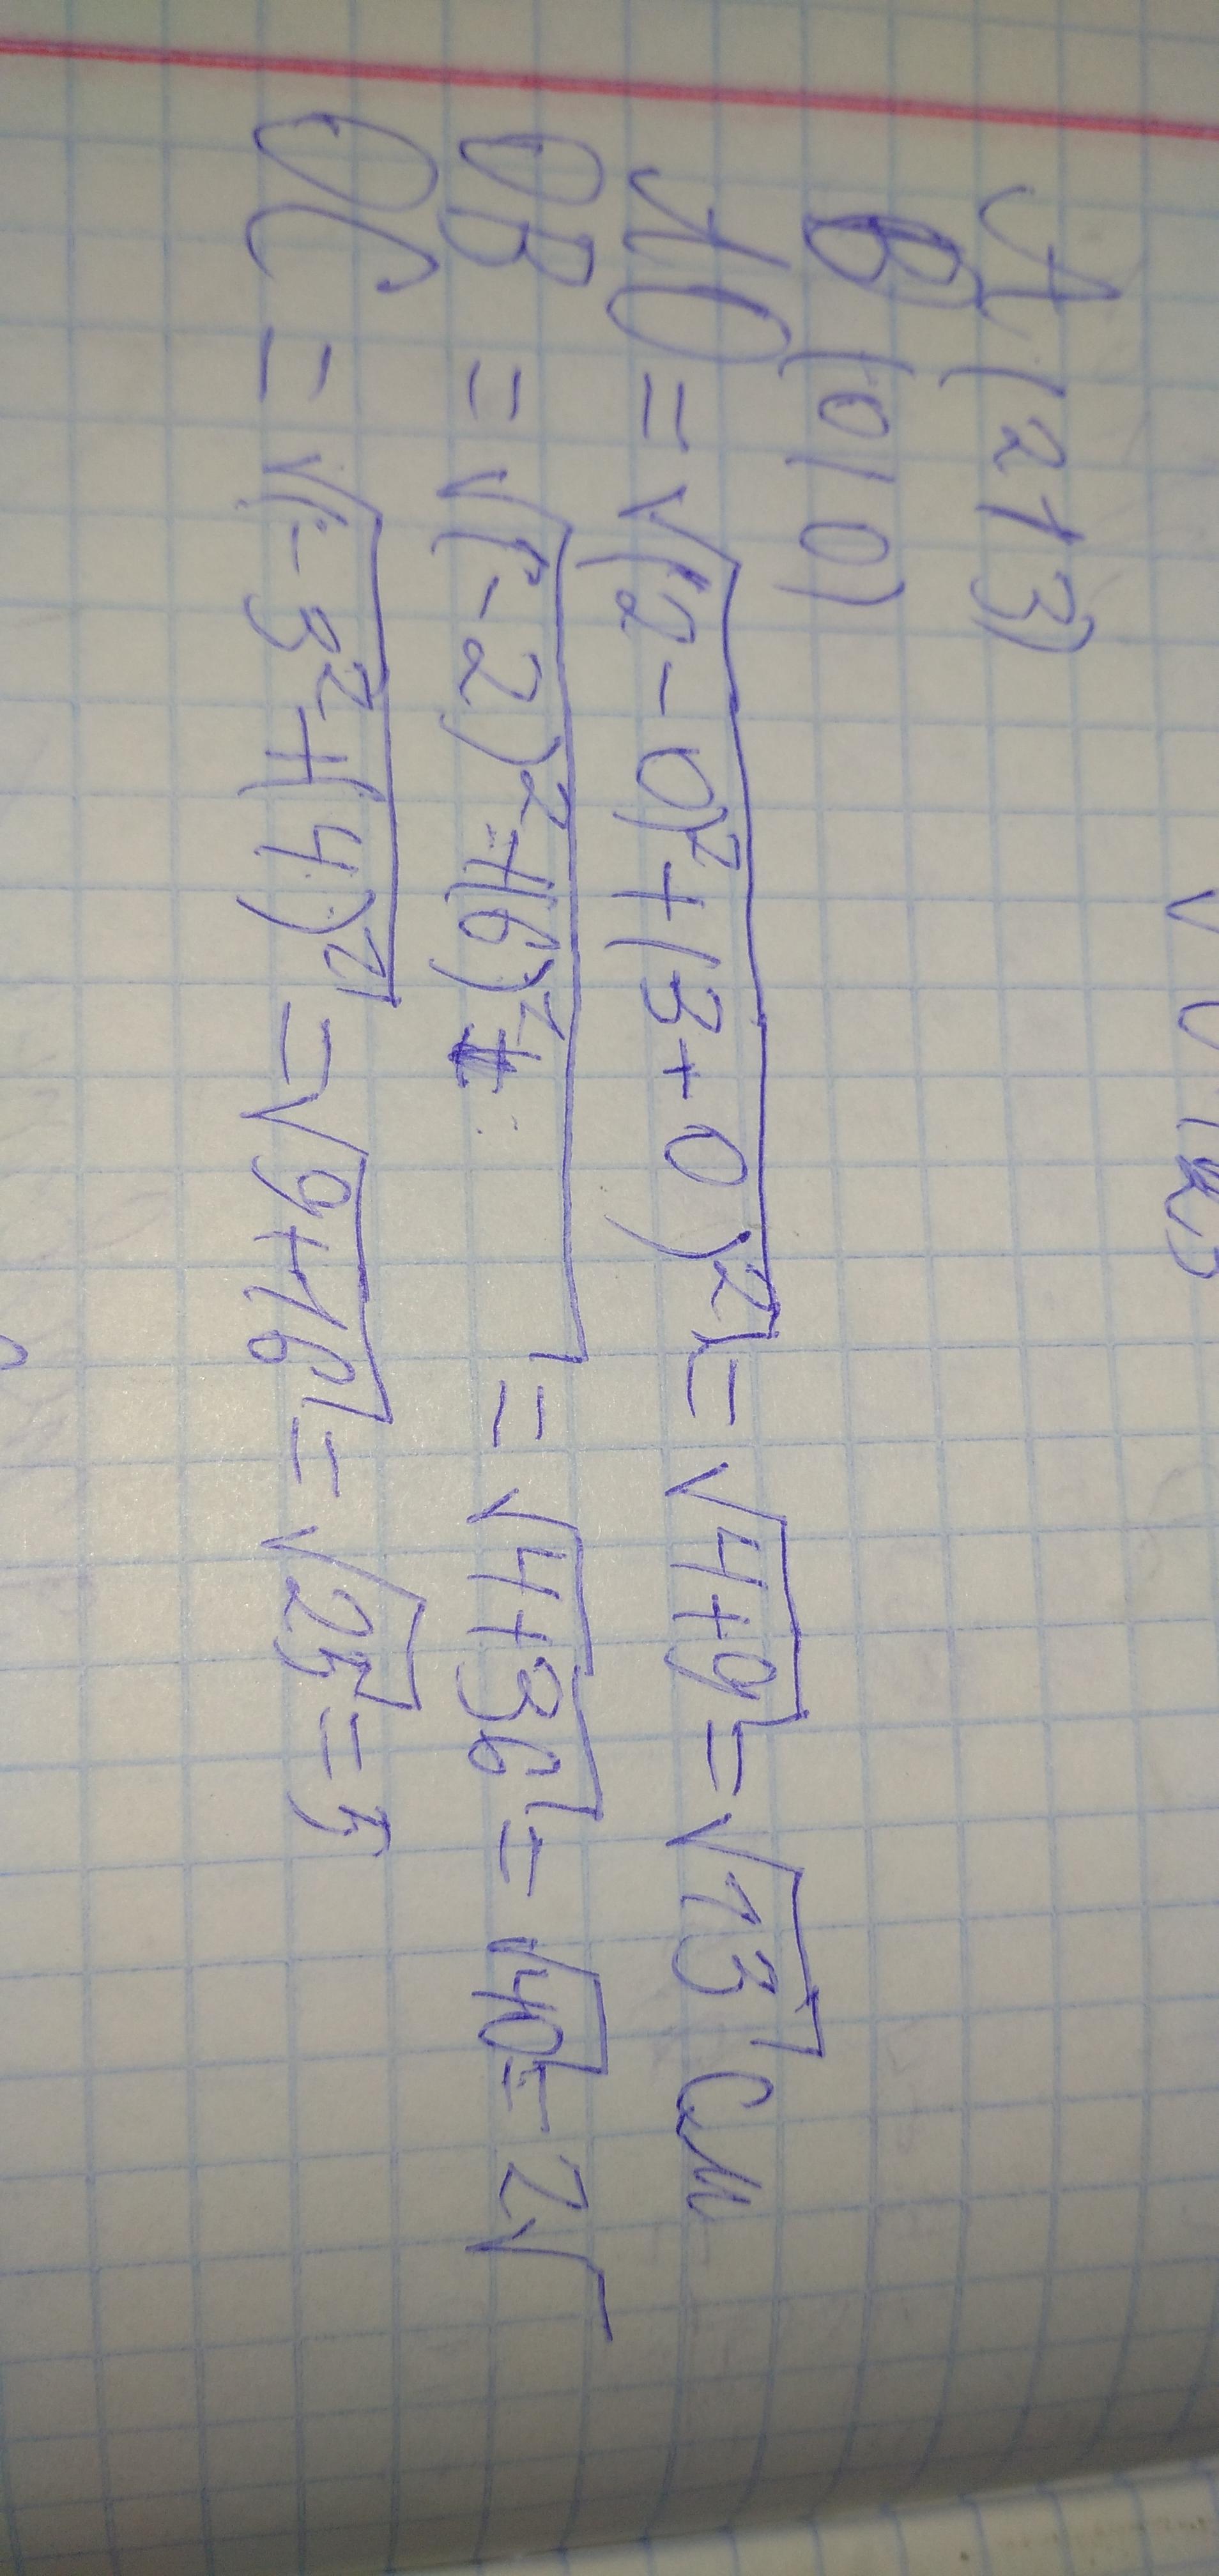 A (2 | 3)
O (0 | 0)
AO = √((2-0)² + (3+0)²) = √(4+9) = √13 см
OB = √((-2)² + (6)²) = √(4+36) = √40 = 2√
OC = √((-3² + (4)²) = √(9+16) = √25 = 5